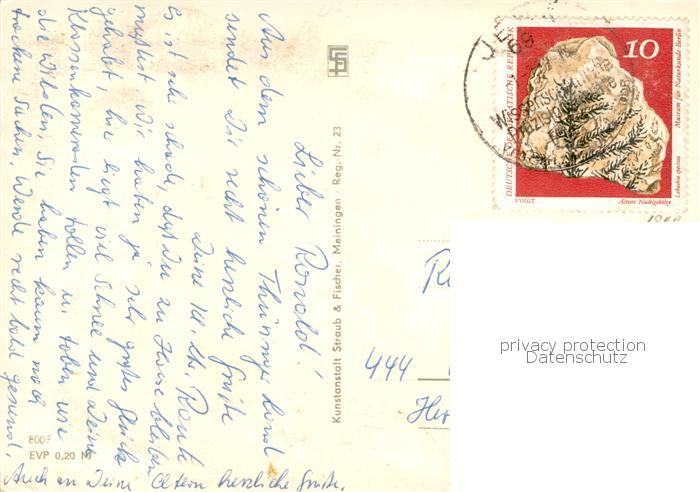 Lieber Ronald!
Aus dem schönen Thüringer Land
sendet Dir recht herzliche Grüße
Deine Kl. Ltr. Raute
Es ist sehr schade, daß Du zu Hause bleiben
mußtest. Wir haben ja sehr großes Glück
gehabt, hier liegt viel Schnee und Deine
Klassenkameraden tollen u. toben wie
die Wilden. Sie haben kaum noch
trockene Sachen. Werde recht bald gesund.
Auch an Deine Eltern herzliche Grüße.
8003
EVP 0,20 M
Kunstanstalt Straub & Fischer, Meiningen · Reg.-Nr. 23
10
DEUTSCHE DEMOKRATISCHE REPUBLIK
Museum für Naturkunde Berlin
Lebachia speciosa
VOIGT
Älteste Nadelgehölze
69
444
privacy protection
Datenschutz